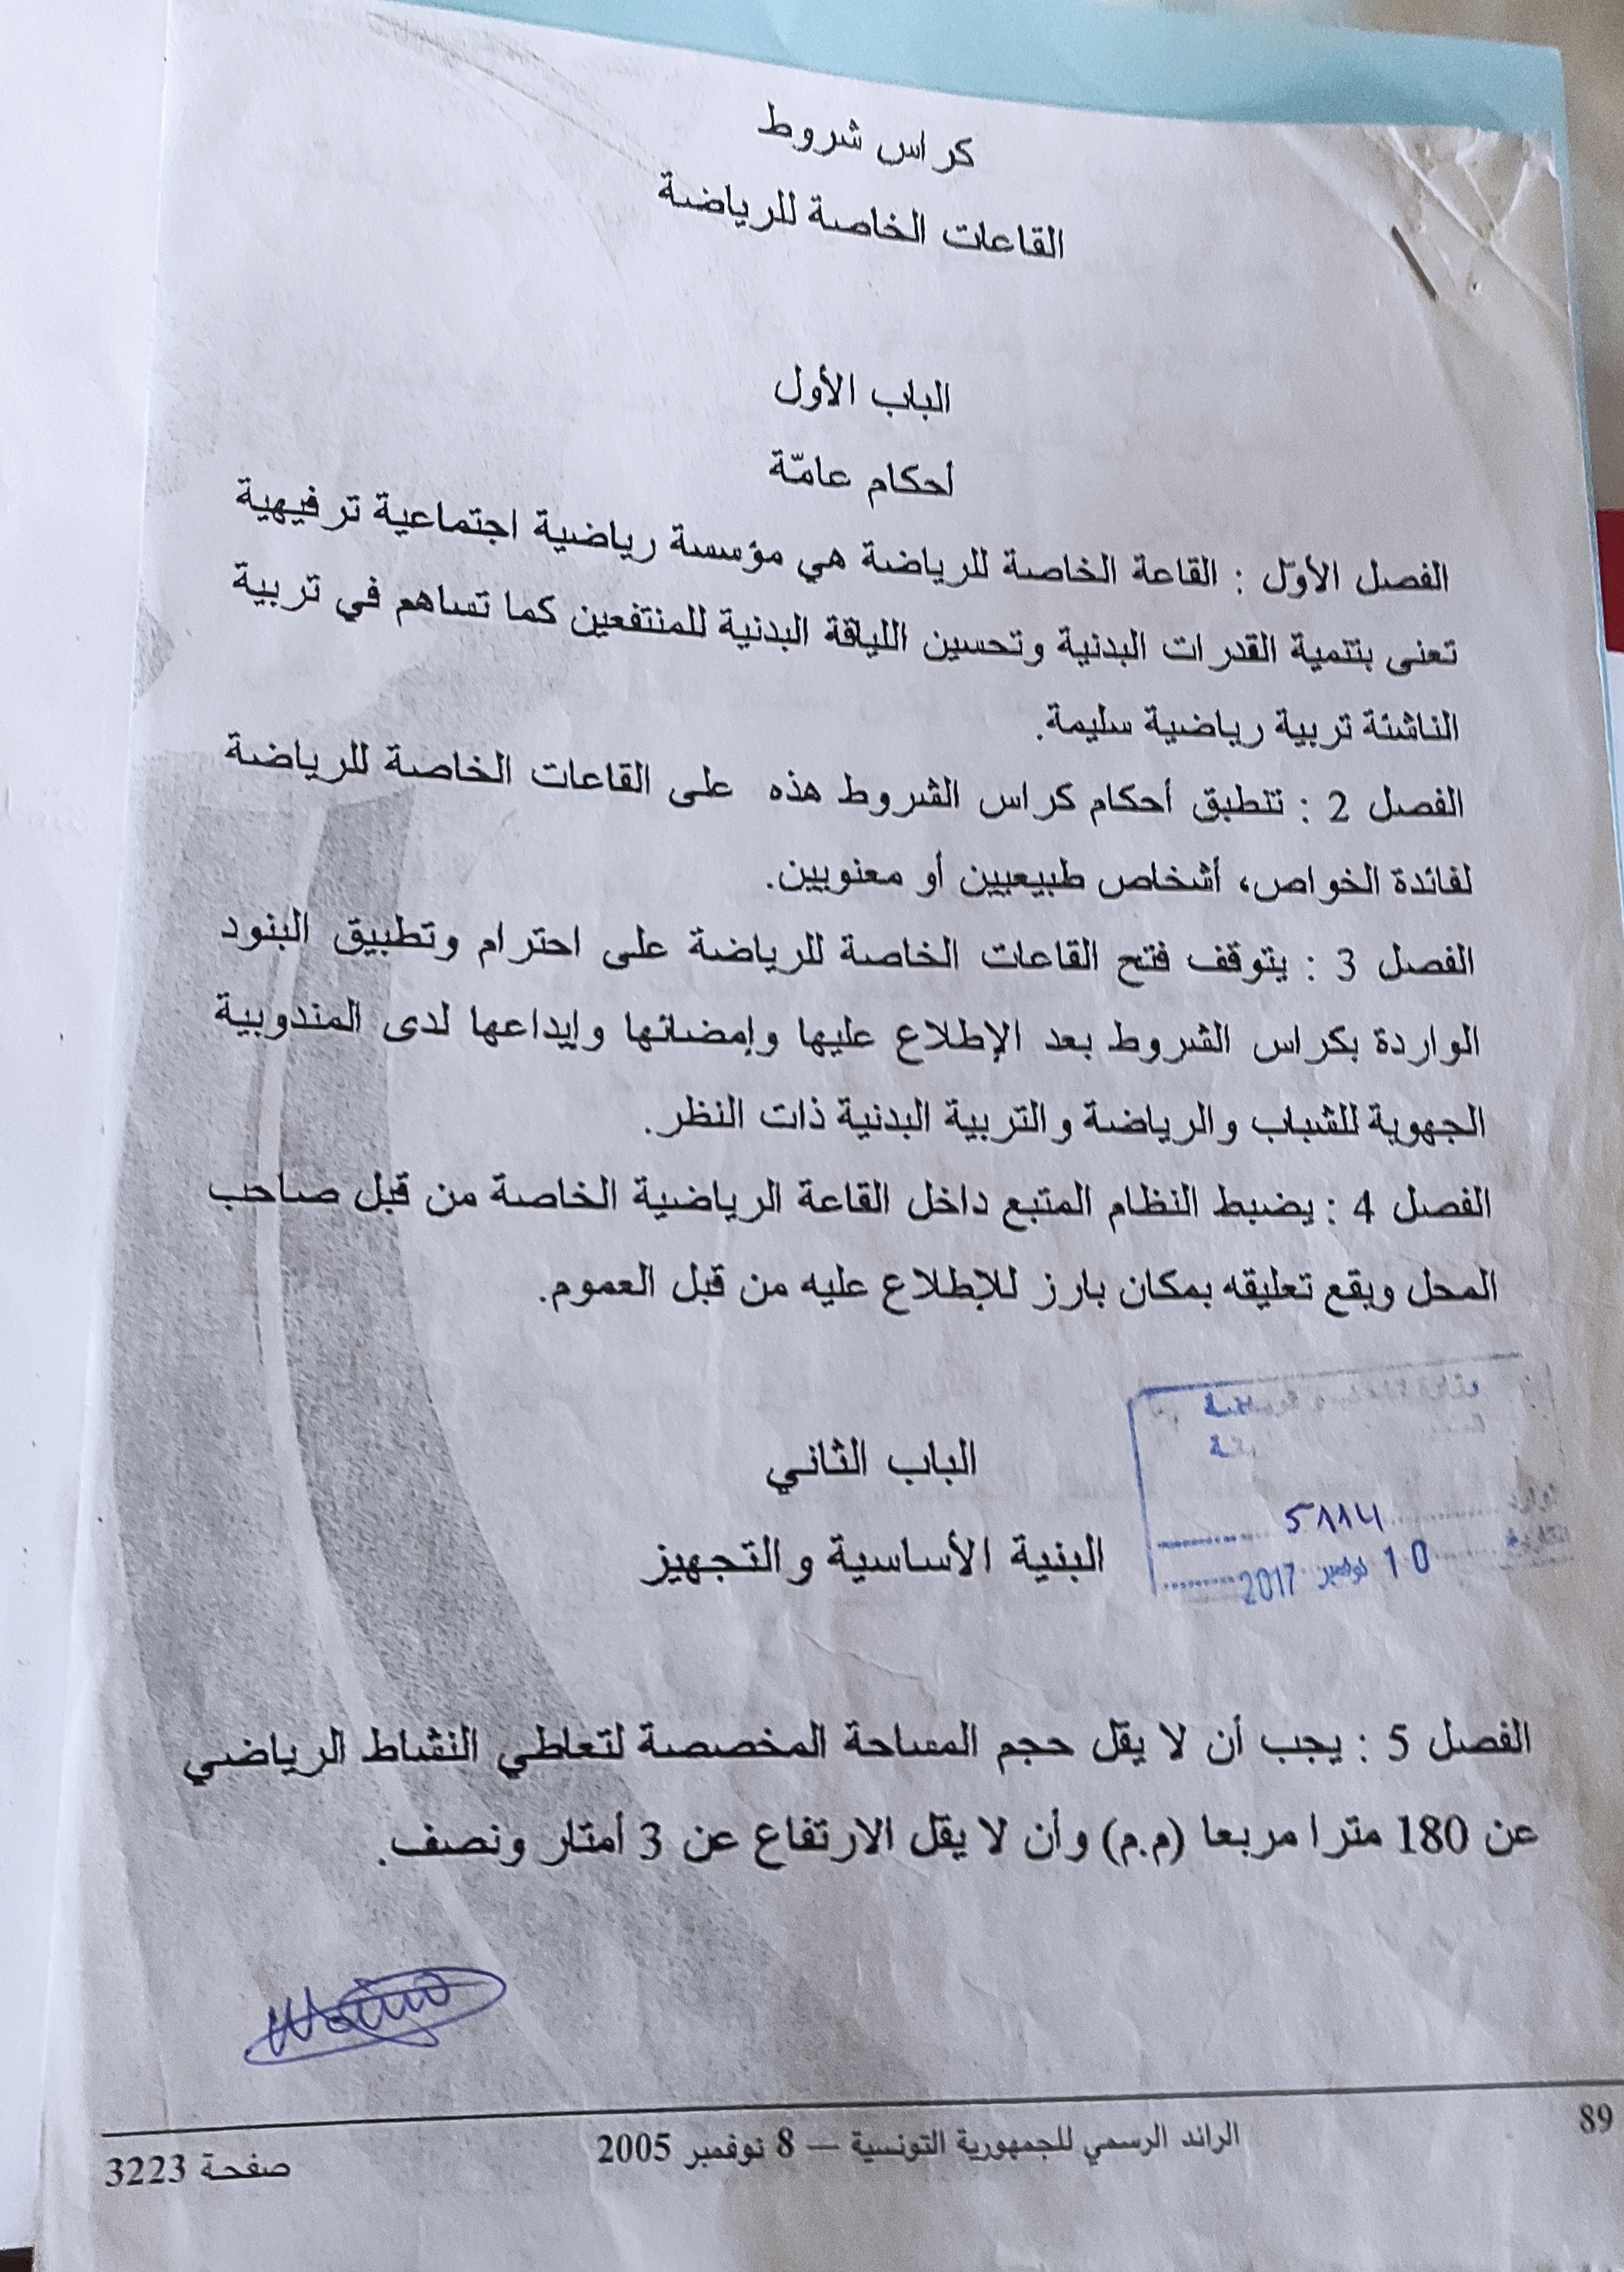 كراس شروط
القاعات الخاصة للرياضة
الباب الأول
أحكام عامّة
الفصل الأوّل : القاعة الخاصة للرياضة هي مؤسسة رياضية اجتماعية ترفيهية
تعنى بتنمية القدرات البدنية وتحسين اللياقة البدنية للمنتفعين كما تساهم في تربية
الناشئة تربية رياضية سليمة.
الفصل 2 : تنطبق أحكام كراس الشروط هذه على القاعات الخاصة للرياضة
لفائدة الخواص، أشخاص طبيعيين أو معنويين.
الفصل 3 : يتوقف فتح القاعات الخاصة للرياضة على احترام وتطبيق البنود
الواردة بكراس الشروط بعد الإطلاع عليها وإمضائها وإيداعها لدى المندوبية
الجهوية للشباب والرياضة والتربية البدنية ذات النظر.
الفصل 4 : يضبط النظام المتبع داخل القاعة الرياضية الخاصة من قبل صاحب
المحل ويقع تعليقه بمكان بارز للإطلاع عليه من قبل العموم.
وزارة
5114
10 نوفمبر 2017
الباب الثاني
البنية الأساسية والتجهيز
الفصل 5 : يجب أن لا يقل حجم المساحة المخصصة لتعاطي النشاط الرياضي
عن 180 مترا مربعا (م.م) وأن لا يقل الارتفاع عن 3 أمتار ونصف.
89
الرائد الرسمي للجمهورية التونسية — 8 نوفمبر 2005
صفحة 3223